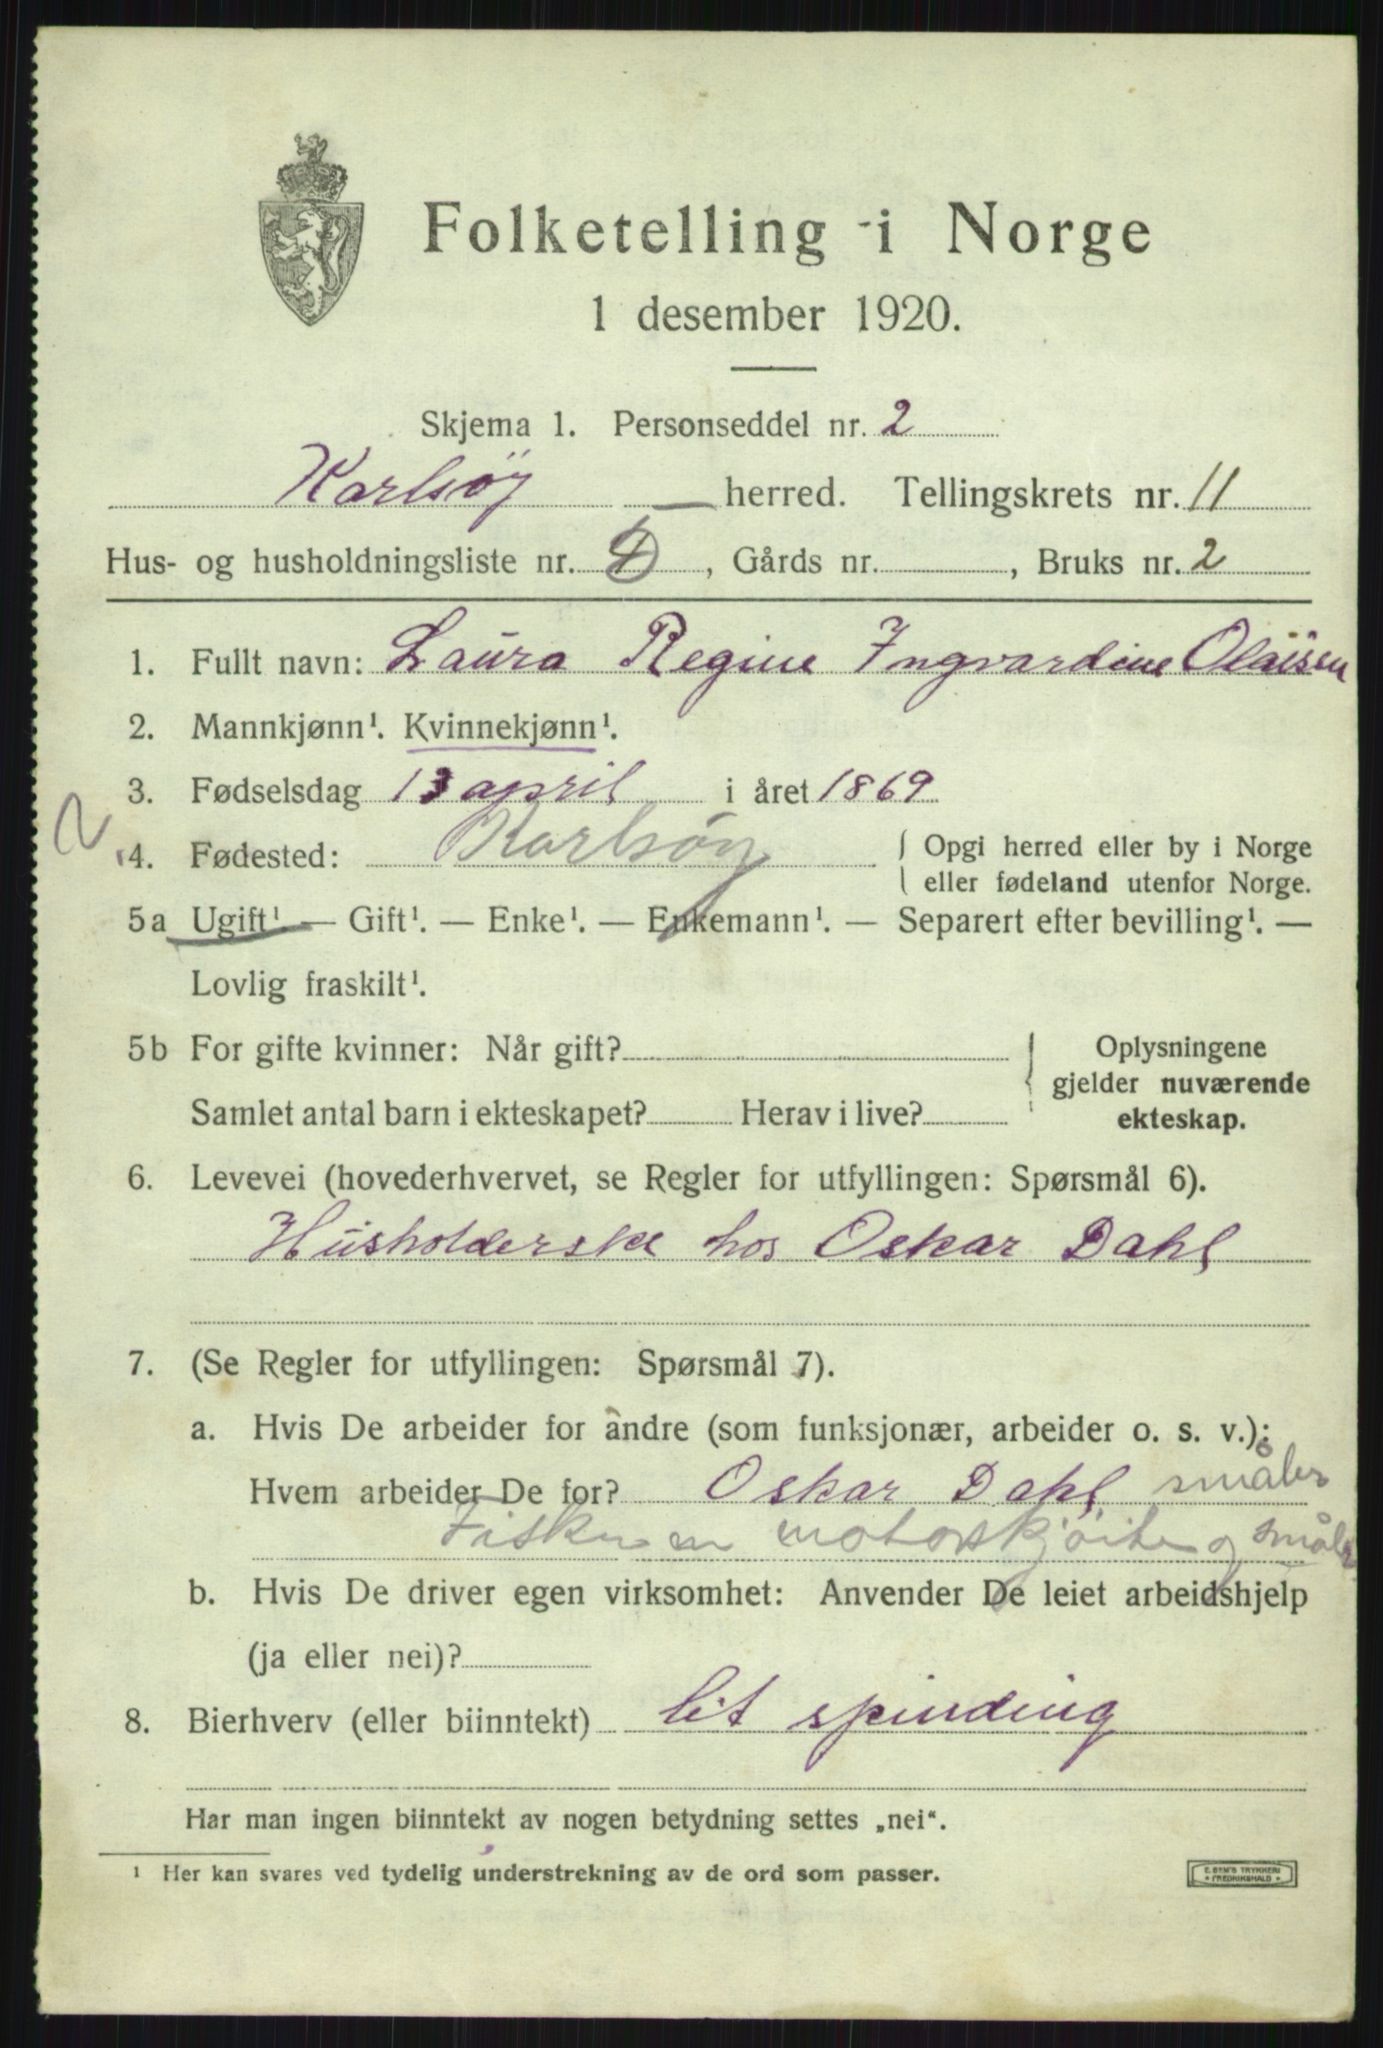 Folketelling i Norge
1 desember 1920.
Skjema 1. Personseddel nr. 2
Karlsøy herred. Tellingskrets nr. 11
Hus- og husholdningsliste nr. , Gårds nr. , Bruks nr. 2
1. Fullt navn: Laura Regine Ingvardine Olaisen
2. Mannkjønn¹. Kvinnekjønn¹.
3. Fødselsdag 13 april i året 1869
2
4. Fødested: Karlsøy { Opgi herred eller by i Norge
eller fødeland utenfor Norge.
5a Ugift¹ — Gift¹. — Enke¹. — Enkemann¹. — Separert efter bevilling¹. —
Lovlig fraskilt¹.
5b For gifte kvinner: Når gift? { Oplysningene
gjelder nuværende
Samlet antal barn i ekteskapet? Herav i live? ekteskap.
6. Levevei (hovederhvervet, se Regler for utfyllingen: Spørsmål 6).
Husholderske hos Oskar Dahl
7. (Se Regler for utfyllingen: Spørsmål 7).
a. Hvis De arbeider for andre (som funksjonær, arbeider o. s. v.):
Hvem arbeider De for? Oskar Dahl småbr
Fisker m motorskjöite og småbr
b. Hvis De driver egen virksomhet: Anvender De leiet arbeidshjelp
(ja eller nei)?
8. Bierhverv (eller biinntekt) lit spinding
Har man ingen biinntekt av nogen betydning settes „nei“.
¹ Her kan svares ved tydelig understrekning av de ord som passer.
E. SEM'S TRYKKERI
* FREDRIKSHALD *